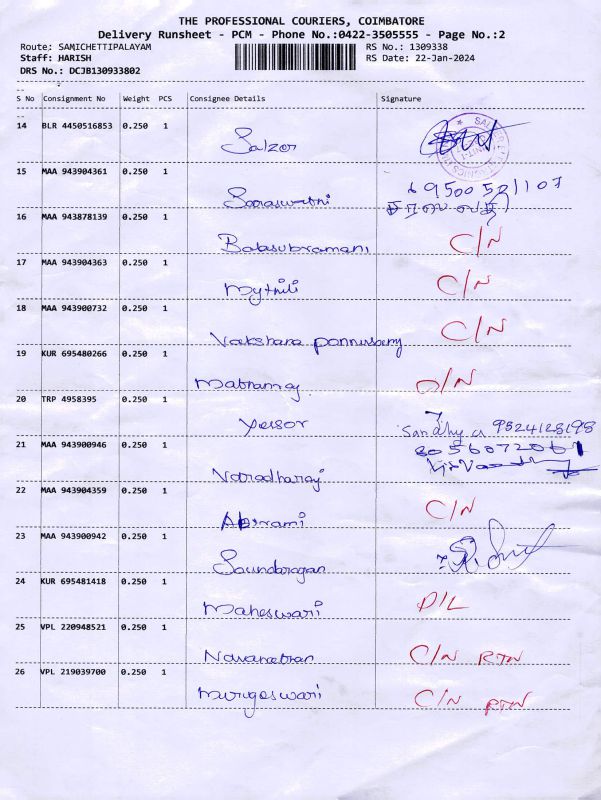 THE PROFESSIONAL COURIERS, COIMBATORE
Delivery Runsheet - PCM - Phone No.:0422-3505555 - Page No.:2
Route: SAMICHETTIPALAYAM RS No.: 1309338
Staff: HARISH RS Date: 22-Jan-2024
DRS No.: DCJB130933802
S No Consignment No Weight PCS Consignee Details Signature
14 BLR 4450516853 0.250 1
Salzer
15 MAA 943904361 0.250 1
9500521107
Saraswathi சரஸ்வதி
16 MAA 943878139 0.250 1
Balasubramani C/N
17 MAA 943904363 0.250 1
Mythili C/N
18 MAA 943900732 0.250 1
Vakshara ponnusamy C/N
19 KUR 695480266 0.250 1
D/N
20 TRP 4958395 0.250 1
Sandhya 9524128198
21 MAA 943900946 0.250 1
8056072061
Varadharaj
22 MAA 943904359 0.250 1
Abirami C/N
23 MAA 943900942 0.250 1
Soundaragan
24 KUR 695481418 0.250 1
Maheswari D/L
25 VPL 220948521 0.250 1
C/N RTN
26 VPL 219039700 0.250 1
Murgeswari C/N RTN